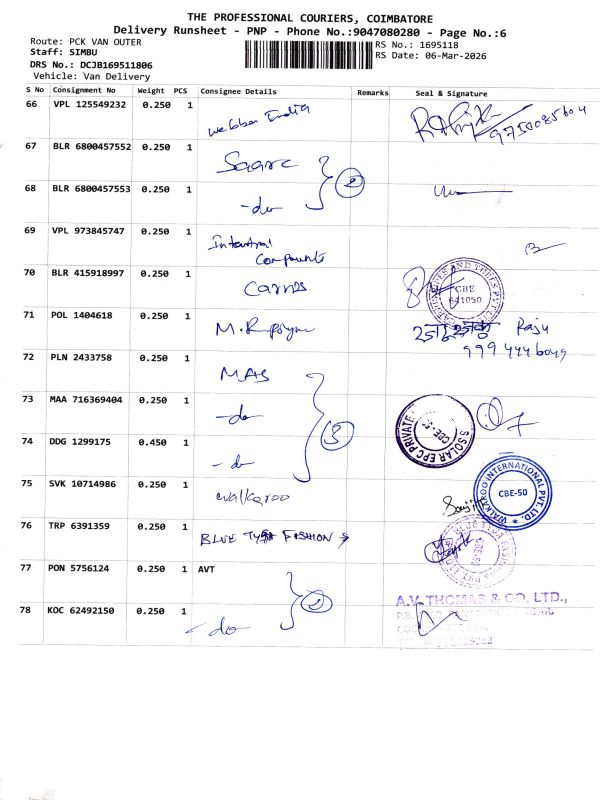 THE PROFESSIONAL COURIERS, COIMBATORE
Delivery Runsheet - PNP - Phone No.:9047080280 - Page No.:6
Route: PCK VAN OUTER
RS No.: 1695118
Staff: SIMBU
RS Date: 06-Mar-2026
DRS No.: DCJB169511806
Vehicle: Van Delivery
S No Consignment No Weight PCS Consignee Details Remarks Seal & Signature
66 VPL 125549232 0.250 1 India
67 BLR 6800457552 0.250 1 Saarc
68 BLR 6800457553 0.250 1 -do 2
69 VPL 973845747 0.250 1
70 BLR 415918997 0.250 1 CBE 641050
71 POL 1404618 0.250 1 Raju
72 PLN 2433758 0.250 1 MAS
73 MAA 716369404 0.250 1 -do 3
SOLAR EPC PRIVATE
74 DDG 1299175 0.450 1 -do
75 SVK 10714986 0.250 1 walkaroo
WALKAROO INTERNATIONAL PVT. LTD.
CBE-50
76 TRP 6391359 0.250 1 BLUE FASHION
77 PON 5756124 0.250 1 AVT 2
A.V. THOMAS & CO. LTD.,
78 KOC 62492150 0.250 1 -do